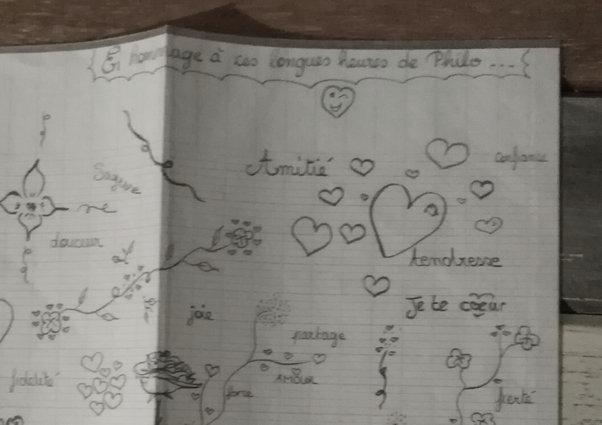 { En hommage à ces longues heures de Philo ... }
Amitié
confiance
Sagesse
douceur
tendresse
Je te cœur
joie
partage
fidélité
Amour
force
fierté